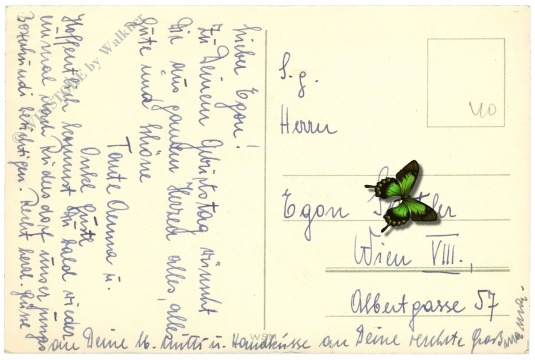 Lieber Egon!
Zu Deinem Geburtstag wünscht
Dir aus ganzem Herzen alles, alles
Gute und Schöne
Tante Aenna u.
Onkel
Hoffentlich kommst Du bald wieder
einmal nach unser
besichtigen. Recht herzl. Grüße
an Deine lb. Mutti u. Handküsse an Deine verehrte Großmama.
S. g.
Herrn
Egon
Wien VIII.,
Albertgasse 57
40
by Walkner